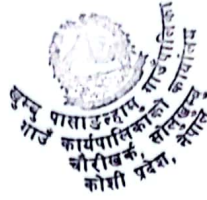 खुम्बु पासाङल्हामु गाउँपालिका
गाउँ कार्यपालिकाको कार्यालय
चौरीखर्क, सोलुखुम्बु
कोशी प्रदेश, नेपाल